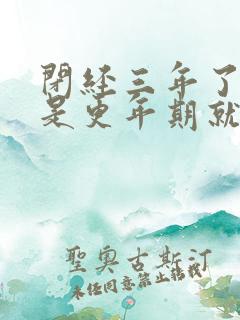 閉經三年了
是更年期就
聖奧古斯汀
未經同意禁止轉載